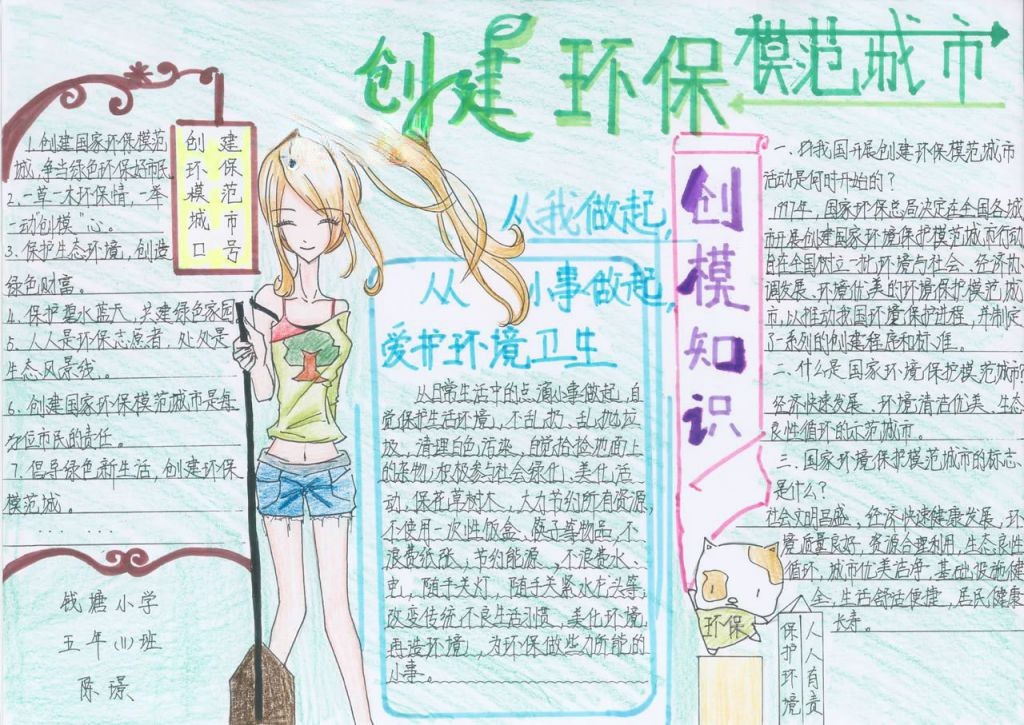 创建环保模范城市
创建
环保
模范
城市
口号
1.创建国家环保模范
城,争当绿色环保好市民
2.一草一木环保情,一举
一动“创模”心。
3.保护生态环境,创造
绿色财富。
4.保护碧水蓝天,共建绿色家园
5.人人是环保志愿者,处处是
生态风景线。
6.创建国家环保模范城市是每
每位市民的责任。
7.倡导绿色新生活,创建环保
模范城。
......
钱塘小学
五年(11)班
陈璟
从我做起,
从小事做起,
爱护环境卫生
从日常生活中的点滴小事做起,自
觉保护生活环境,不乱扔、乱抛垃
圾,清理白色污染,自觉拾捡地面上
的杂物,积极参与社会绿化、美化活
动,保花草树木,大力节约所有资源,
不使用一次性饭盒、筷子等物品,不
浪费纸张,节约能源,不浪费水、
电,随手关灯,随手关紧水龙头等,
改变传统不良生活习惯,美化环境,
再造环境,为环保做些力所能的
小事。
创模知识
一、我国开展创建环保模范城市
活动是何时开始的?
1997年,国家环保总局决定在全国各城
市开展创建国家环境保护模范城市行动
旨在全国树立一批环境与社会、经济协
调发展、环境优美的环境保护模范城
市,以推动我国环境保护进程,并制定
了一系列的创建程序和标准。
二、什么是国家环境保护模范城市
经济快速发展、环境清洁优美、生态
良性循环的示范城市。
三、国家环境保护模范城市的标志
是什么?
社会文明昌盛,经济快速健康发展,环
境质量良好,资源合理利用,生态良性
循环,城市优美洁净,基础设施健
全,生活舒适便捷,居民健康
长寿。
环保
人人有责
保护环境